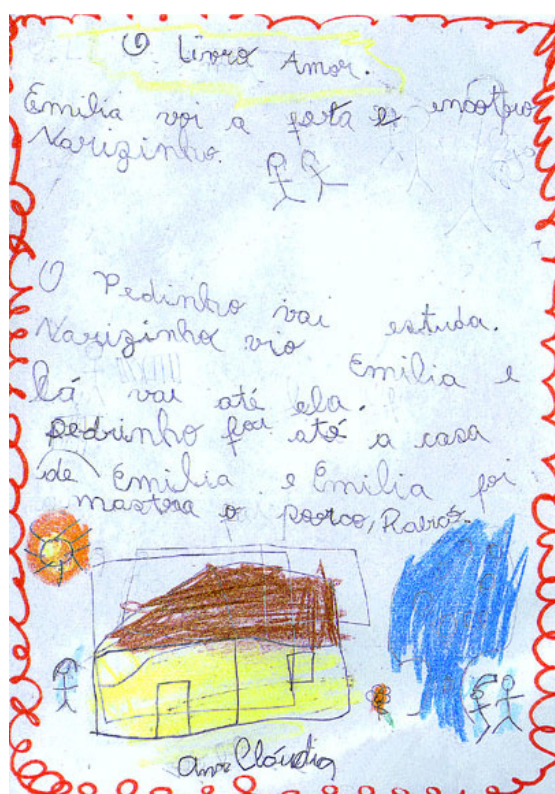 O Livro Amor.
Emilia voi a festa e encotro
Narizinho.
O Pedinho vai estuda.
Narizinho vio Emilia e
lá vai até ela.
Pedrinho foi até a casa
de Emilia e Emilia foi
mastra o porco, Rabos.
Ana Cláudia